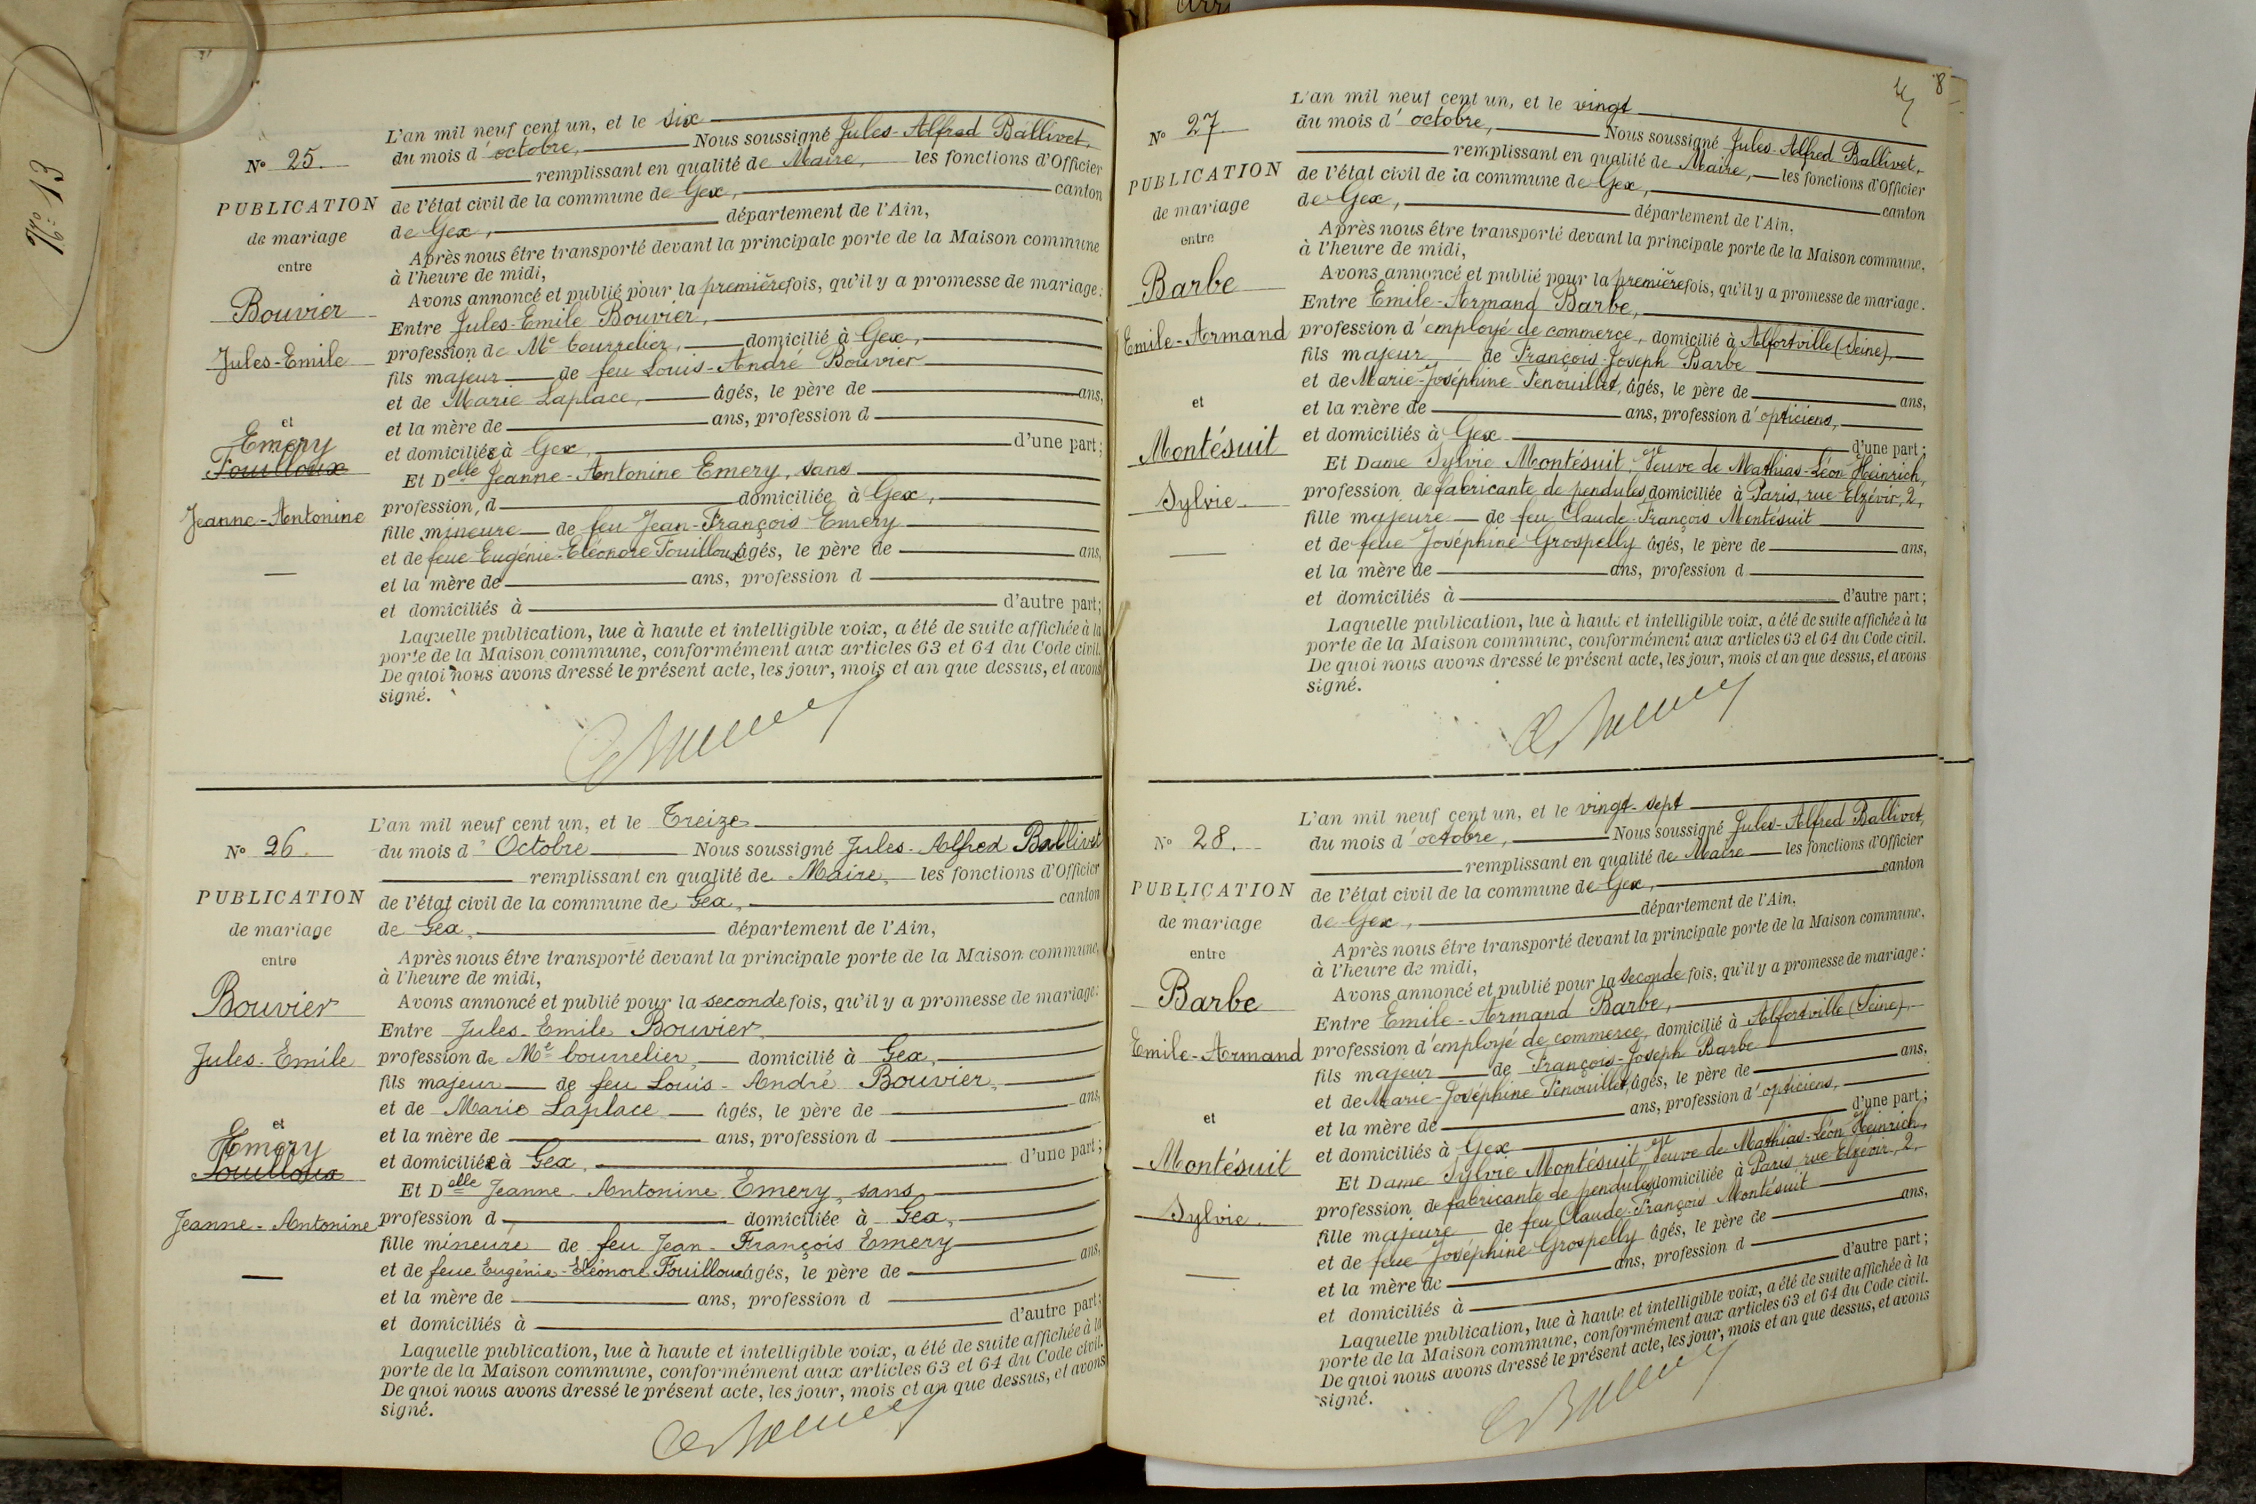 N° 13
N° 25.
PUBLICATION
de mariage
entre
Bouvier
Jules-Emile
et
Emery
Fouilloux
Jeanne-Antonine
L'an mil neuf cent un, et le six
du mois d'octobre, Nous soussigné Jules-Alfred Ballivet,
remplissant en qualité de Maire, les fonctions d'Officier
de l'état civil de la commune de Gex, canton
de Gex, département de l'Ain,
Après nous être transporté devant la principale porte de la Maison commune
à l'heure de midi,
Avons annoncé et publié pour la première fois, qu'il y a promesse de mariage:
Entre Jules-Emile Bouvier,
profession de Me bourrelier, domicilié à Gex,
fils majeur de feu Louis-André Bouvier
et de Marie Laplace, âgés, le père de ans,
et la mère de ans, profession d
et domiciliée à Gex, d'une part;
Et Delle Jeanne-Antonine Emery, sans
profession, d domiciliée à Gex,
fille mineure de feu Jean-François Emery
et de feue Eugénie-Eléonore Fouilloux âgés, le père de ans,
et la mère de ans, profession d
et domiciliés à d'autre part;
Laquelle publication, lue à haute et intelligible voix, a été de suite affichée à la
porte de la Maison commune, conformément aux articles 63 et 64 du Code civil.
De quoi nous avons dressé le présent acte, les jour, mois et an que dessus, et avons
signé.
N° 26.
PUBLICATION
de mariage
entre
Bouvier
Jules-Emile
et
Emery
Fouilloux
Jeanne-Antonine
L'an mil neuf cent un, et le Treize
du mois d'Octobre Nous soussigné Jules-Alfred Ballivet
remplissant en qualité de Maire, les fonctions d'Officier
de l'état civil de la commune de Gex, canton
de Gex, département de l'Ain,
Après nous être transporté devant la principale porte de la Maison commune,
à l'heure de midi,
Avons annoncé et publié pour la seconde fois, qu'il y a promesse de mariage:
Entre Jules-Emile Bouvier,
profession de Me bourrelier, domicilié à Gex,
fils majeur de feu Louis-André Bouvier,
et de Marie Laplace âgés, le père de ans,
et la mère de ans, profession d
et domiciliée à Gex, d'une part;
Et Delle Jeanne-Antonine Emery, sans
profession d domiciliée à Gex,
fille mineure de feu Jean-François Emery
et de feue Eugénie-Eléonore Fouilloux âgés, le père de ans,
et la mère de ans, profession d
et domiciliés à d'autre part;
Laquelle publication, lue à haute et intelligible voix, a été de suite affichée à la
porte de la Maison commune, conformément aux articles 63 et 64 du Code civil.
De quoi nous avons dressé le présent acte, les jour, mois et an que dessus, et avons
signé.
8
N° 27
PUBLICATION
de mariage
entre
Barbe
Emile-Armand
et
Montésuit
Sylvie
L'an mil neuf cent un, et le vingt
du mois d'octobre, Nous soussigné Jules-Alfred Ballivet,
remplissant en qualité de Maire, les fonctions d'Officier
de l'état civil de la commune de Gex, canton
de Gex, département de l'Ain,
Après nous être transporté devant la principale porte de la Maison commune,
à l'heure de midi,
Avons annoncé et publié pour la première fois, qu'il y a promesse de mariage.
Entre Emile-Armand Barbe,
profession d'employé de commerce, domicilié à Alfortville (Seine),
fils majeur de François-Joseph Barbe
et de Marie-Joséphine Penouillet, âgés, le père de ans,
et la mère de ans, profession d'opticiens,
et domiciliés à Gex d'une part;
Et Dame Sylvie Montésuit, Veuve de Mathias-Léon Heinrich,
profession de fabricante de pendules, domiciliée à Paris, rue Elzévir, 2,
fille majeure de feu Claude-François Montésuit
et de feue Joséphine Grospelly âgés, le père de ans,
et la mère de ans, profession d
et domiciliés à d'autre part;
Laquelle publication, lue à haute et intelligible voix, a été de suite affichée à la
porte de la Maison commune, conformément aux articles 63 et 64 du Code civil.
De quoi nous avons dressé le présent acte, les jour, mois et an que dessus, et avons
signé.
N° 28.
PUBLICATION
de mariage
entre
Barbe
Emile-Armand
et
Montésuit
Sylvie.
L'an mil neuf cent un, et le vingt-sept
du mois d'octobre, Nous soussigné Jules-Alfred Ballivet,
remplissant en qualité de Maire les fonctions d'Officier
de l'état civil de la commune de Gex, canton
de Gex, département de l'Ain,
Après nous être transporté devant la principale porte de la Maison commune,
à l'heure de midi,
Avons annoncé et publié pour la seconde fois, qu'il y a promesse de mariage:
Entre Emile-Armand Barbe,
profession d'employé de commerce, domicilié à Alfortville (Seine),
fils majeur de François-Joseph Barbe
et de Marie-Joséphine Penouillet, âgés, le père de ans,
et la mère de ans, profession d'opticiens,
et domiciliés à Gex d'une part;
Et Dame Sylvie Montésuit Veuve de Mathias-Léon Heinrich,
profession de fabricante de pendules, domiciliée à Paris, rue Elzévir, 2,
fille majeure de feu Claude-François Montésuit
et de feue Joséphine Grospelly âgés, le père de ans,
et la mère de ans, profession d
et domiciliés à d'autre part;
Laquelle publication, lue à haute et intelligible voix, a été de suite affichée à la
porte de la Maison commune, conformément aux articles 63 et 64 du Code civil.
De quoi nous avons dressé le présent acte, les jour, mois et an que dessus, et avons
signé.